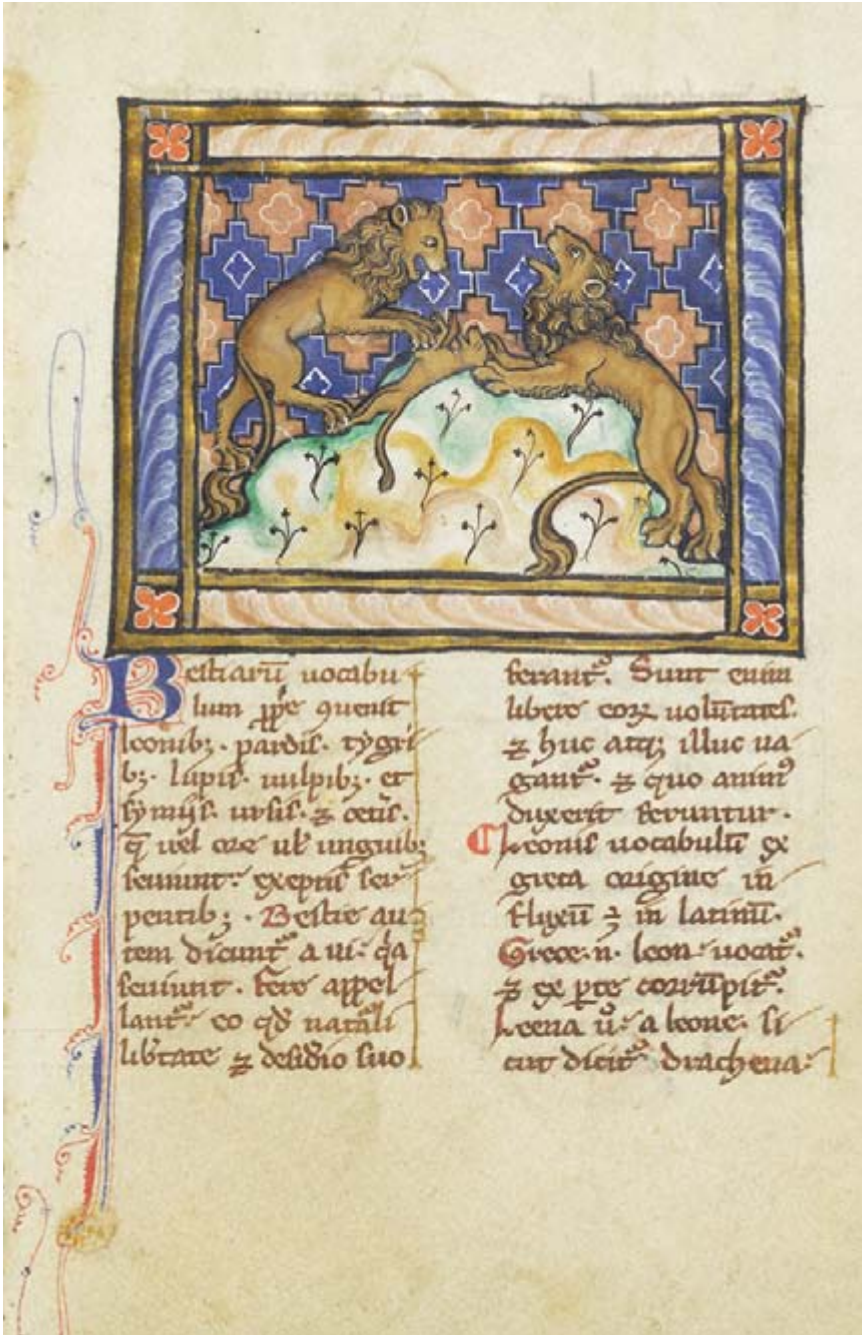 Bestiaru͞ uocabu
lum ꝓp̱e ꝯuenit
leonibꝫ · pardis · tygri
bꝫ · lupis · uulpibꝫ · et
symijs · ursis · ⁊ ceteris ·
q̄ uel ore ul̓ unguibꝫ
seuiunt · exeptis ser
pentibꝫ · Bestie au
tem dicunt᷑ a ui · q̄a
seuiunt · fere appel
lant᷑ · eo qd̓ naturali
lib̓tate ⁊ desid̓io suo
ferant᷑ · Sunt enim
libere eoꝝ uolu͞tates ·
⁊ huc atqꝫ illuc ua
gant᷑ · ⁊ quo animꝰ
duxerit feruntur ·
Leonis uocabulu͞ ex
greca origine in
flexu͞ ⁊ in latinu͞ ·
Grece · n · leon uocat᷑ ·
⁊ ex ꝑte corru͞pit᷑ ·
Leena u̓ · a leone · si
cut dicit᷑ drachena ·